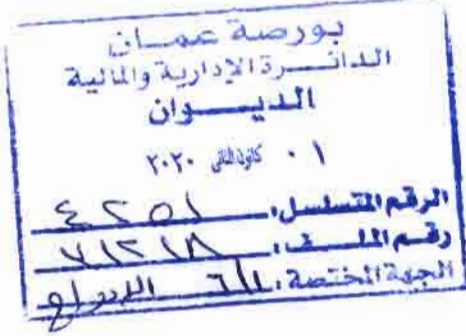 بورصة عمان
الدائرة الإدارية والمالية
الديوان
٠١ كانون الثاني ٢٠٢٠
الرقم المتسلسل: ٤٢٥١
رقم الملف:
الجهة المختصة: الإدراج